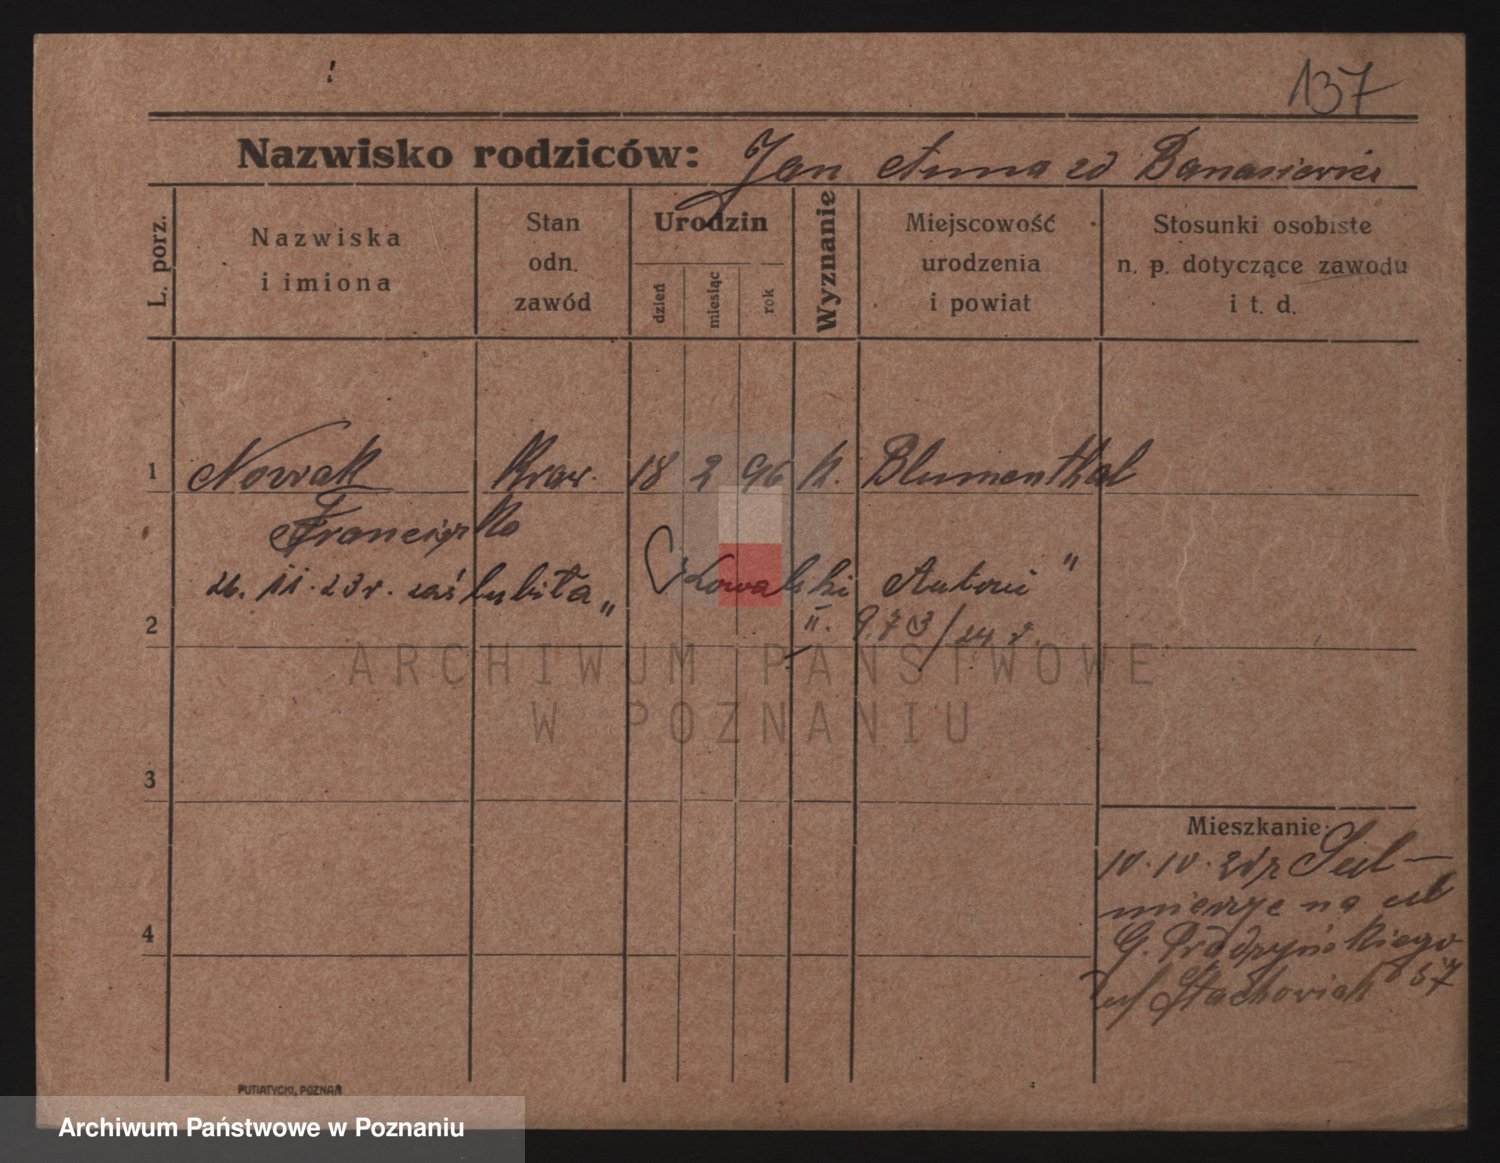 137
Nazwisko rodziców: Jan Anna zd Banasiewicz
L. porz.
Nazwiska
i imiona
Stan
odn.
zawód
Urodzin
dzień
miesiąc
rok
Wyznanie
Miejscowość
urodzenia
i powiat
Stosunki osobiste
n. p. dotyczące zawodu
i t. d.
1 Nowak Kraw. 18 2 96 k. Blumenthal
Franciszka
26. 11. 23r. zaślubiła „Kowalski Antoni"
2 II. 973/24 r.
ARCHIWUM PAŃSTWOWE
W POZNANIU
3
Mieszkanie:
10. 10. Sul-
mierzyc na ul
4 G. Prądzyńskiego
Stachowiak 57
PUTIATYCKI, POZNAŃ
Archiwum Państwowe w Poznaniu